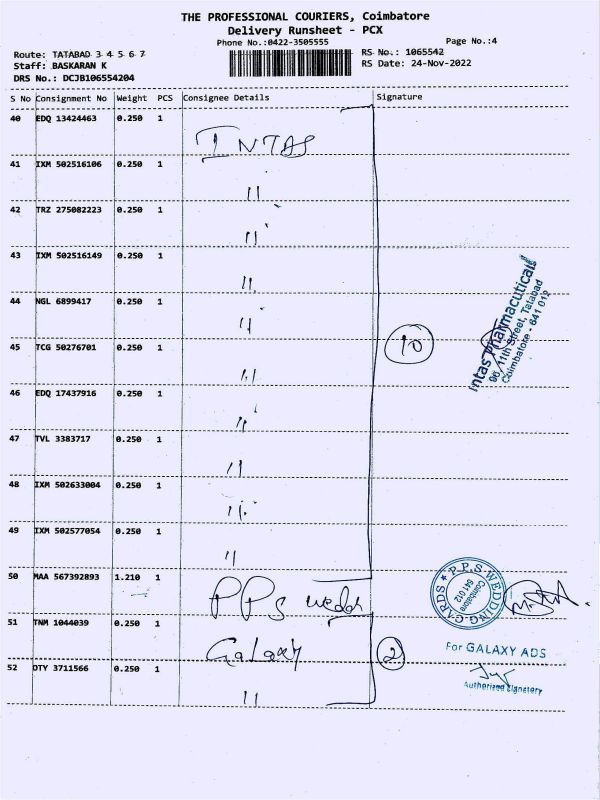 THE PROFESSIONAL COURIERS, Coimbatore
Delivery Runsheet - PCX
Phone No.:0422-3505555
Page No.:4
Route: TATABAD 3 4 5 6 7
RS No.: 1065542
Staff: BASKARAN K
RS Date: 24-Nov-2022
DRS No.: DCJB106554204
S No Consignment No Weight PCS Consignee Details Signature
40 EDQ 13424463 0.250 1
INTAS
41 IXM 502516106 0.250 1
"
42 TRZ 275082223 0.250 1
"
43 IXM 502516149 0.250 1
"
44 NGL 6899417 0.250 1
"
45 TCG 50276701 0.250 1
"
10
Intas Pharmaceuticals
96, 11th Street, Tatabad
Coimbatore - 641 012
46 EDQ 17437916 0.250 1
"
47 TVL 3383717 0.250 1
"
48 IXM 502633004 0.250 1
"
49 IXM 502577054 0.250 1
"
50 MAA 567392893 1.210 1
PPS wedd
P.P.S. WEDDING CARDS
Coimbatore
641 012
51 TNM 1044039 0.250 1
Galaxy
2
For GALAXY ADS
Authorised Signatory
52 DTY 3711566 0.250 1
"